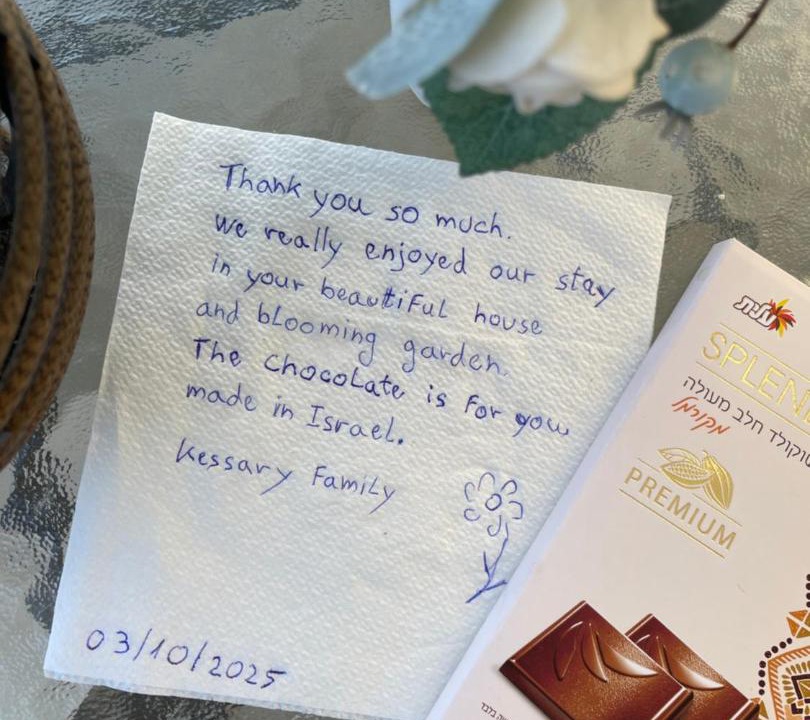 Thank you so much.
we really enjoyed our stay
in your beautiful house
and blooming garden.
The chocolate is for you
made in Israel.
Kessary Family
03/10/2025
עלית
SPLEN
שוקולד חלב מעולה
מקורמל
PREMIUM